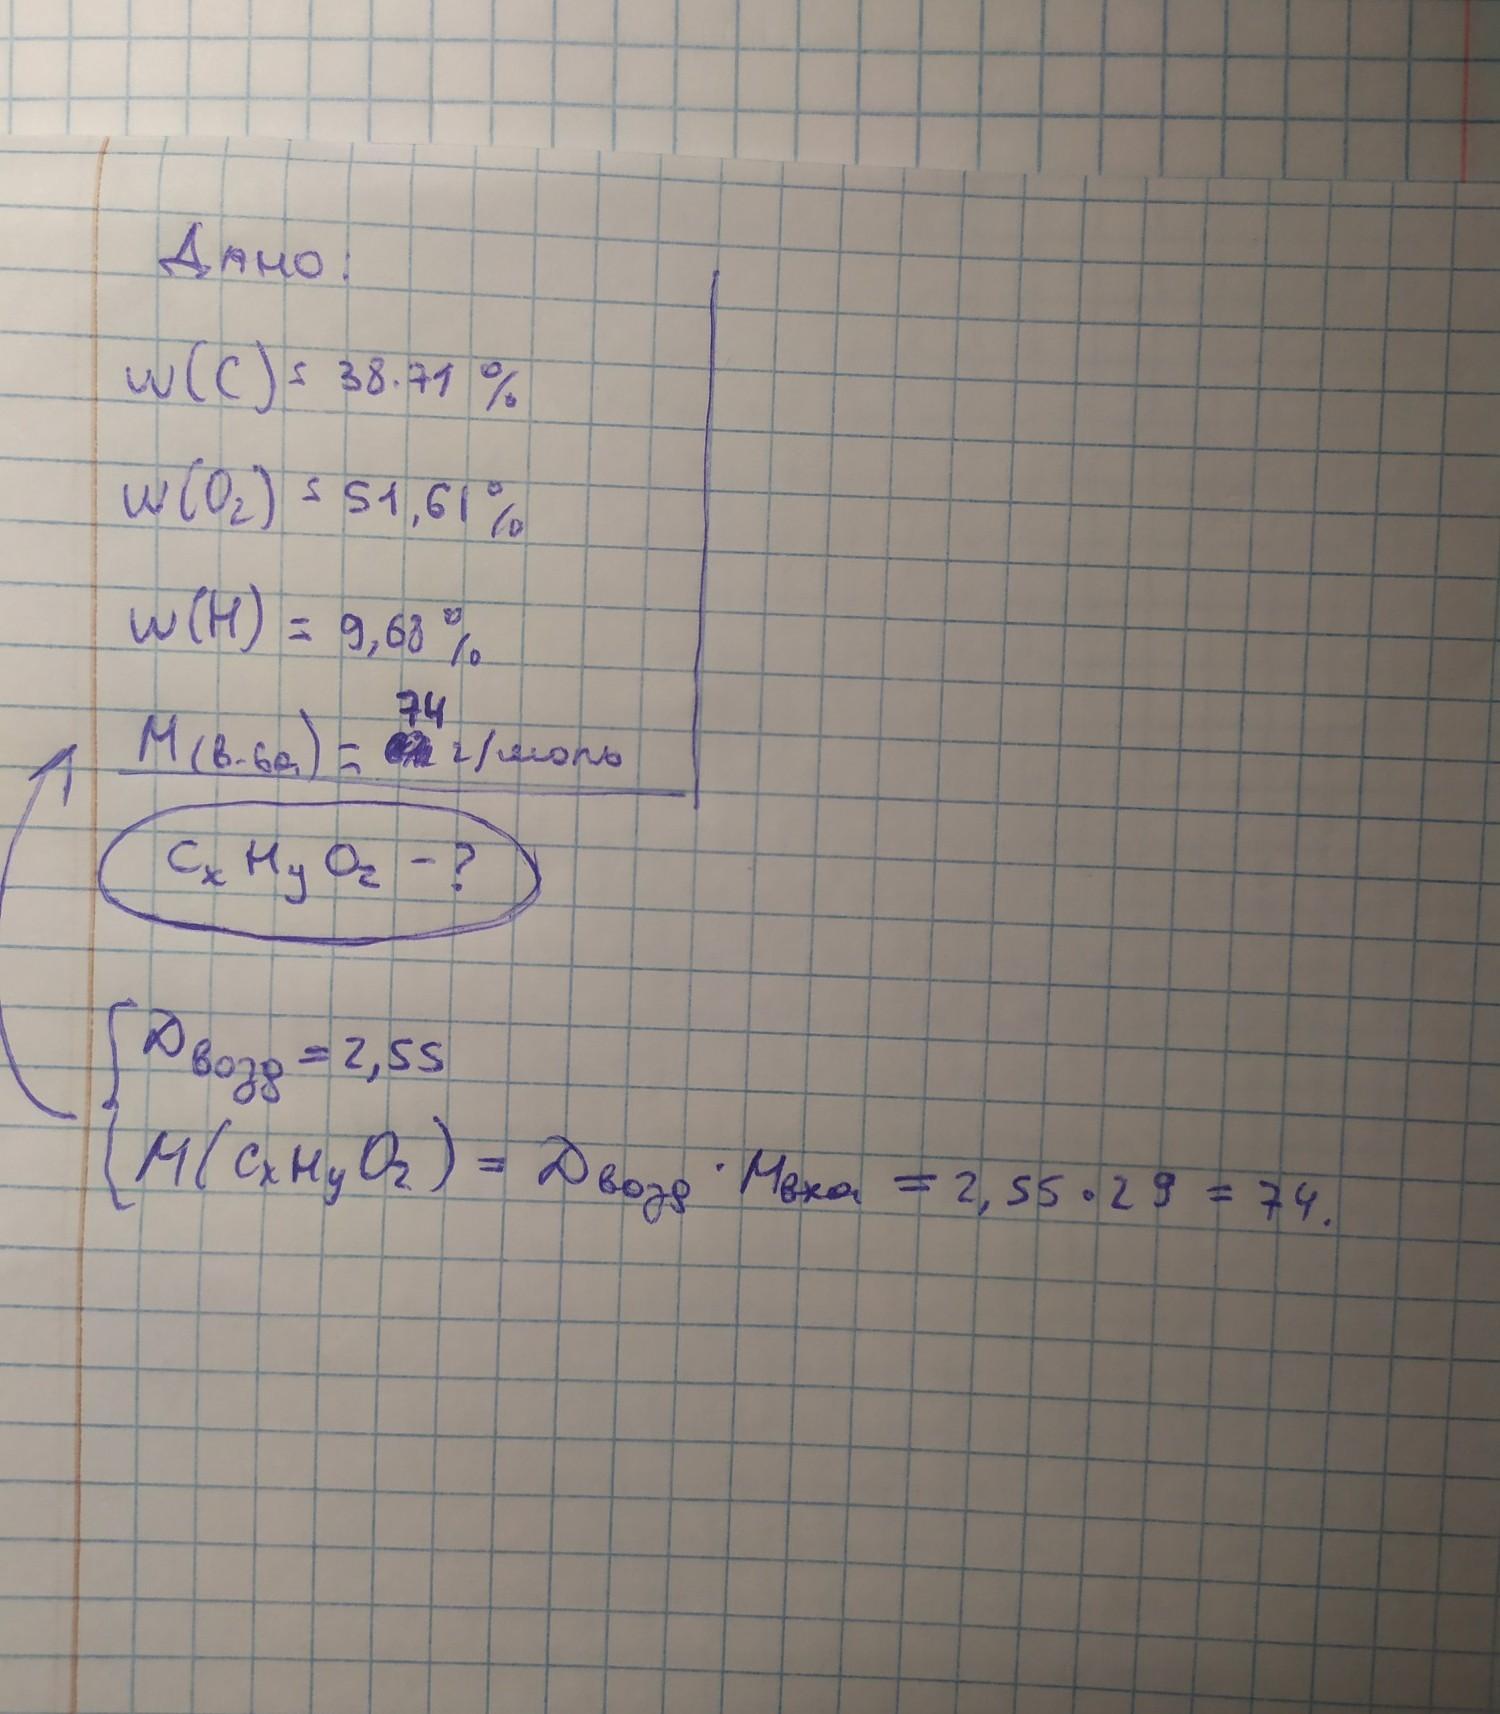 Дано:
w(C) = 38.71 %
w(O₂) = 51,61 %
w(H) = 9,68 %
74
M(в-ва) = г/моль
CₓHᵧO₂ - ?
Dвозд = 2,55
M(CₓHᵧO₂) = Dвозд · Mвха = 2,55 · 29 = 74.